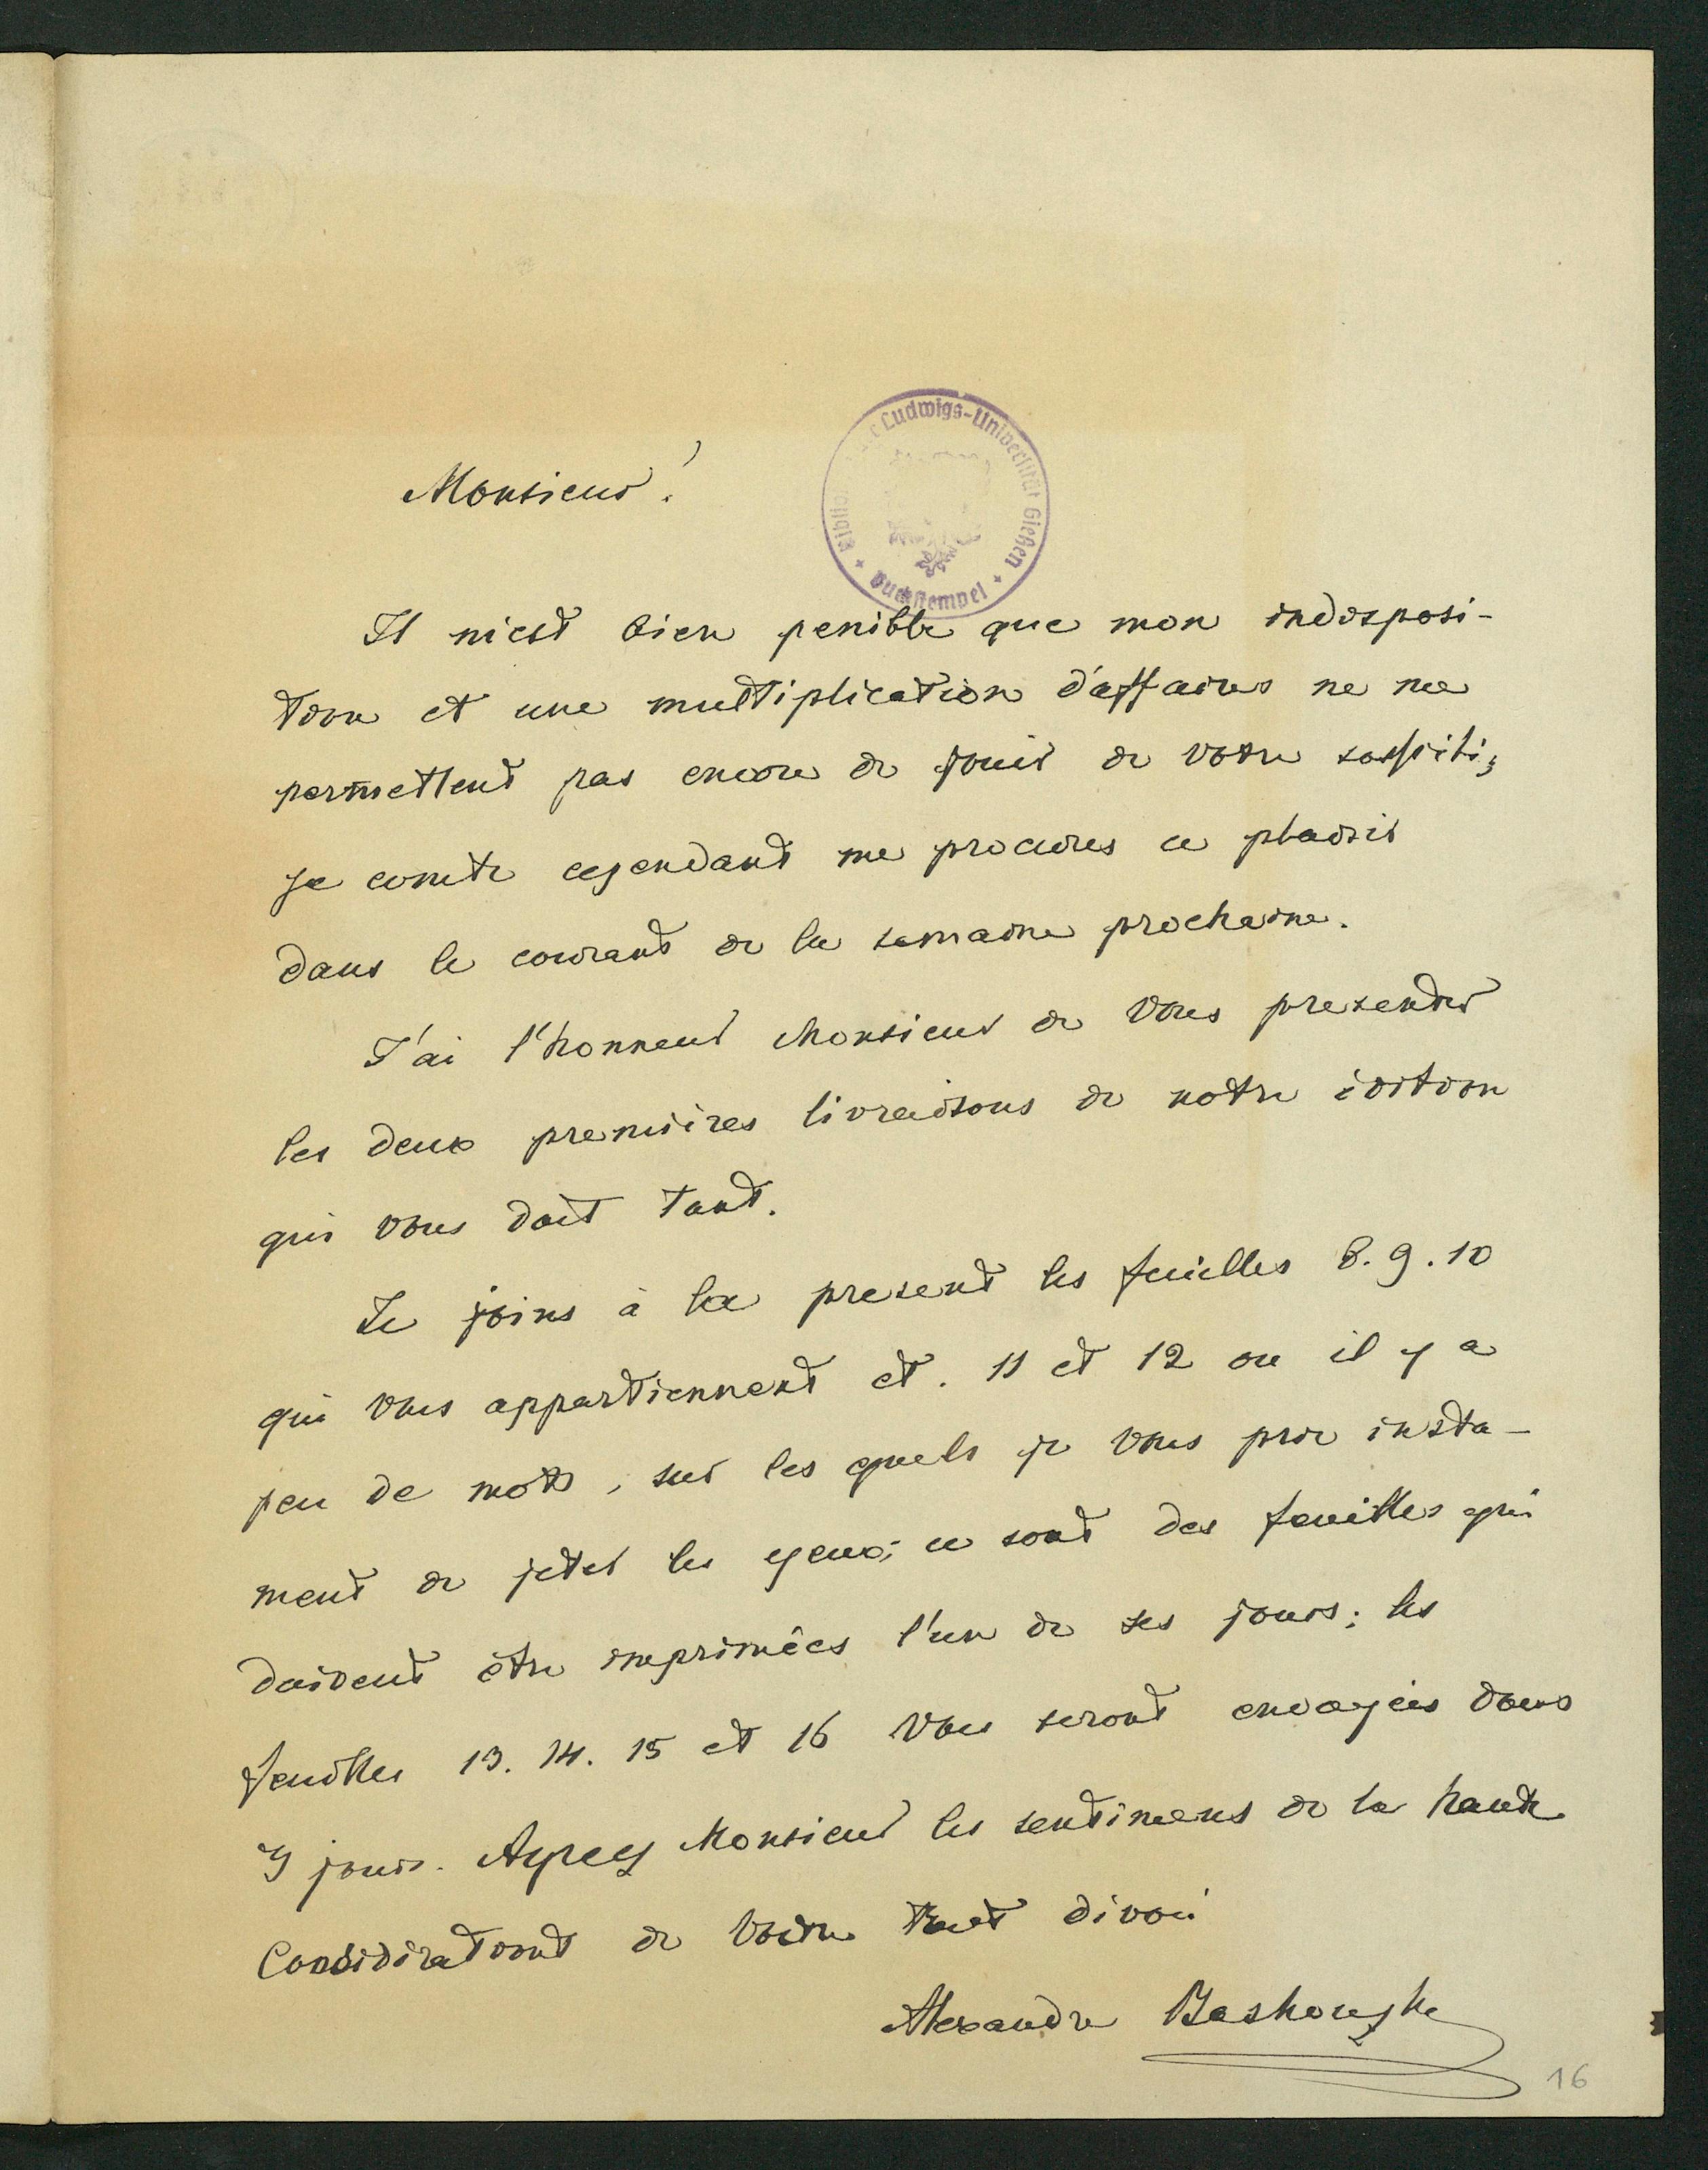 Monsieur!
Bibliothek der Ludwigs-Universität Gießen
+ Buchstempel +
Il m'est bien penible que mon indisposi-
tion et une multiplication d'affaires ne me
permettent pas encore de jouir de votre
je comte cependant me procurer ce plaisir
dans le courant de la semaine prochaine.
J'ai l'honneur Monsieur de vous presenter
les deux premières livraisons de notre édition
qui vous doit tant.
Je joins à la present les feuilles 8. 9. 10
qui vous appartiennent et. 11 et 12 ou il y a
peu de mots, sur les quels je vous prie insta-
ment de jeter les yeux; ce sont des feuilles qui
doivent être imprimées l'un de ses jours; les
feuilles 13. 14. 15 et 16 vous seront envoyées dans
jours. Agreez Monsieur les sentimens de la haute
Considerationt de Votre tout dévoué
Alexandre
16